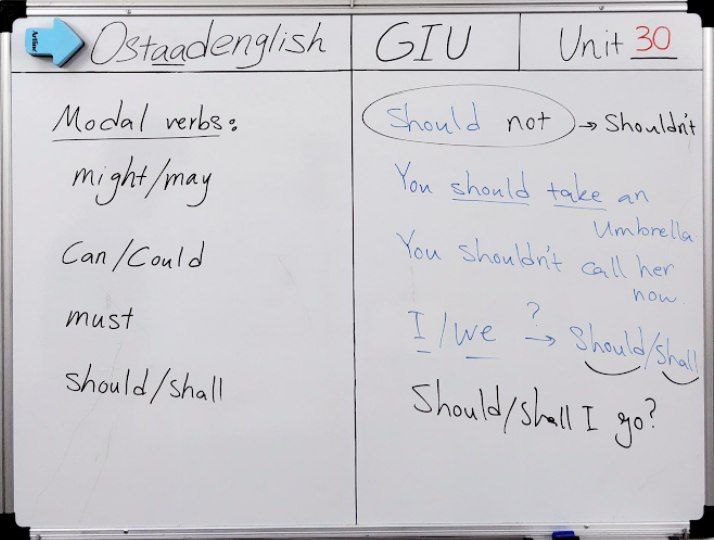 Artline
Ostaadenglish
GIU
Unit 30
Modal verbs:
might/may
Can/Could
must
should/shall
Should not → Shouldn't
You should take an
Umbrella
You shouldn't call her
now.
I/we ?→ Should/Shall
Should/Shall I go?